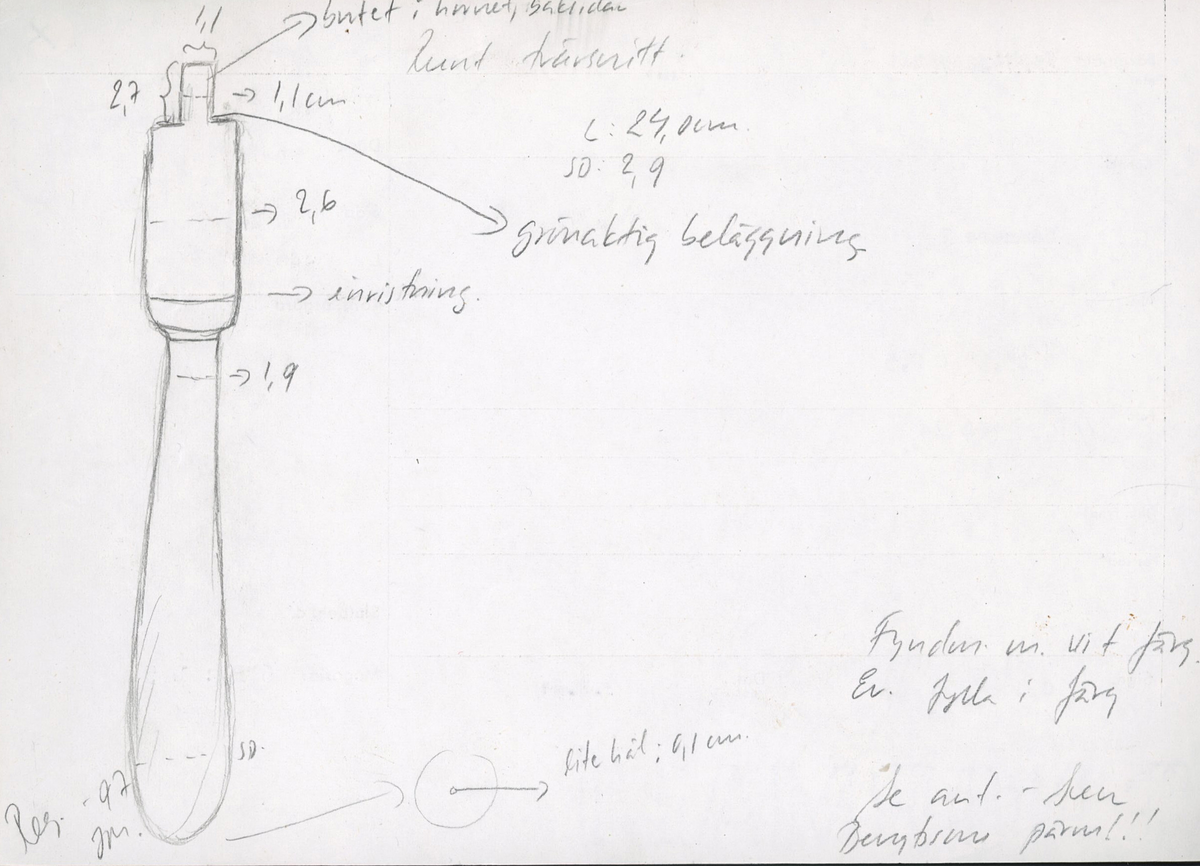 1,1
brutet i hornet, baksidan
Runt tvärsnitt.
2,7
→ 1,1 cm
L: 24,0 cm.
SD: 2,9
→ 2,6
grönaktig beläggning
→ inristning.
→ 1,9
Fyndnr. m. vit färg.
Ev. fylla i färg
SD.
litet hål: 0,1 cm.
-97
Reg.
Se ant. -
pärm!!!